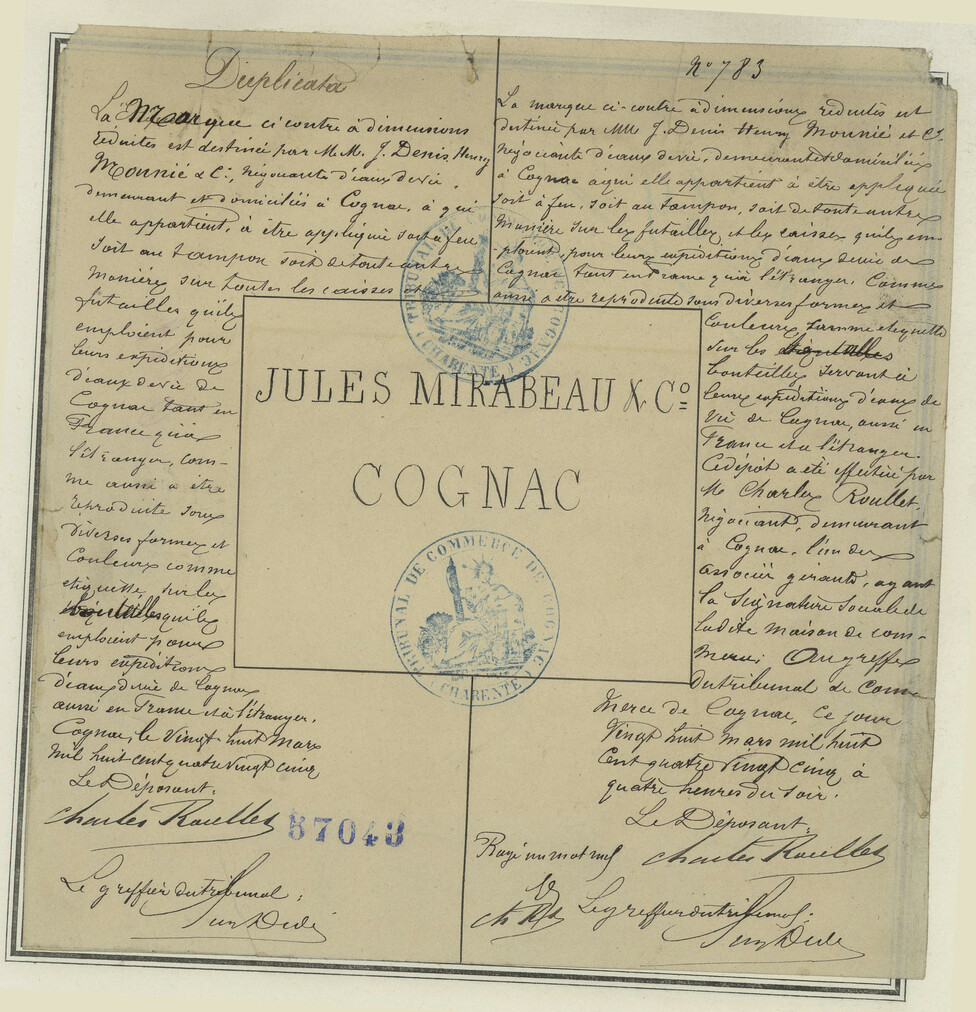 Duplicata
La Marque ci contre à dimensions
réduites est destinée par M.M. J. Denis, Henry
Mounié & Cie, Négociants d'eaux de vie,
demeurant et domiciliés à Cognac, à qui
elle appartient, à être appliquée soit à feu
soit au tampon soit de toute autre
manière sur toutes les caisses et
futailles qu'ils
emploient pour
leurs expéditions
d'eaux de vie de
Cognac tant en
France qu'à
l'étranger, com-
me aussi a être
reproduite sous
diverses formes et
couleurs comme
etiquette, sur les
bouteilles qu'ils
emploient pour
leurs expéditions
d'eaux de vie de Cognac
aussi en France et à l'étranger.
Cognac, le Vingt huit Mars
Mil huit cent quatre vingt cinq
Le Déposant:
Charles Roullet
57043
Le greffier du tribunal:
No 783
La marque ci-contre à dimensions réduites est
destinée par MM J. Denis Henry Mounié et Cie
Négociants d'eaux de vie, demeurant et domiciliés
à Cognac à qui elle appartient à être appliquée
soit à feu, soit au tampon, soit de toute autre
Manière sur les futailles et les caisses qu'ils em-
-ploient pour leurs expéditions d'eaux de vie de
Cognac tant en France qu'à l'étranger. Comme
aussi a être reproduite sous diverses formes et
couleurs comme etiquette
sur les
bouteilles servant à
leurs expéditions d'eaux de
vie de Cognac, aussi en
France et a l'étranger.
Ce dépot a été effectué par
M Charles Roullet,
Négociant, demeurant
à Cognac, l'un des
associés gérants, ayant
la Signature Sociale de
ladite Maison de com-
merce, Au greffe
du tribunal de Com-
merce de Cognac, Ce jour
Vingt huit Mars mil huit
Cent quatre Vingt Cinq à
quatre heures du soir.
Le Déposant:
Charles Roullet
Rayé un mot nul
Ch Rt
Le greffier du tribunal:
JULES MIRABEAU & Co
COGNAC
TRIBUNAL DE COMMERCE DE COGNAC
(CHARENTE)
TRIBUNAL DE COMMERCE DE COGNAC
(CHARENTE)